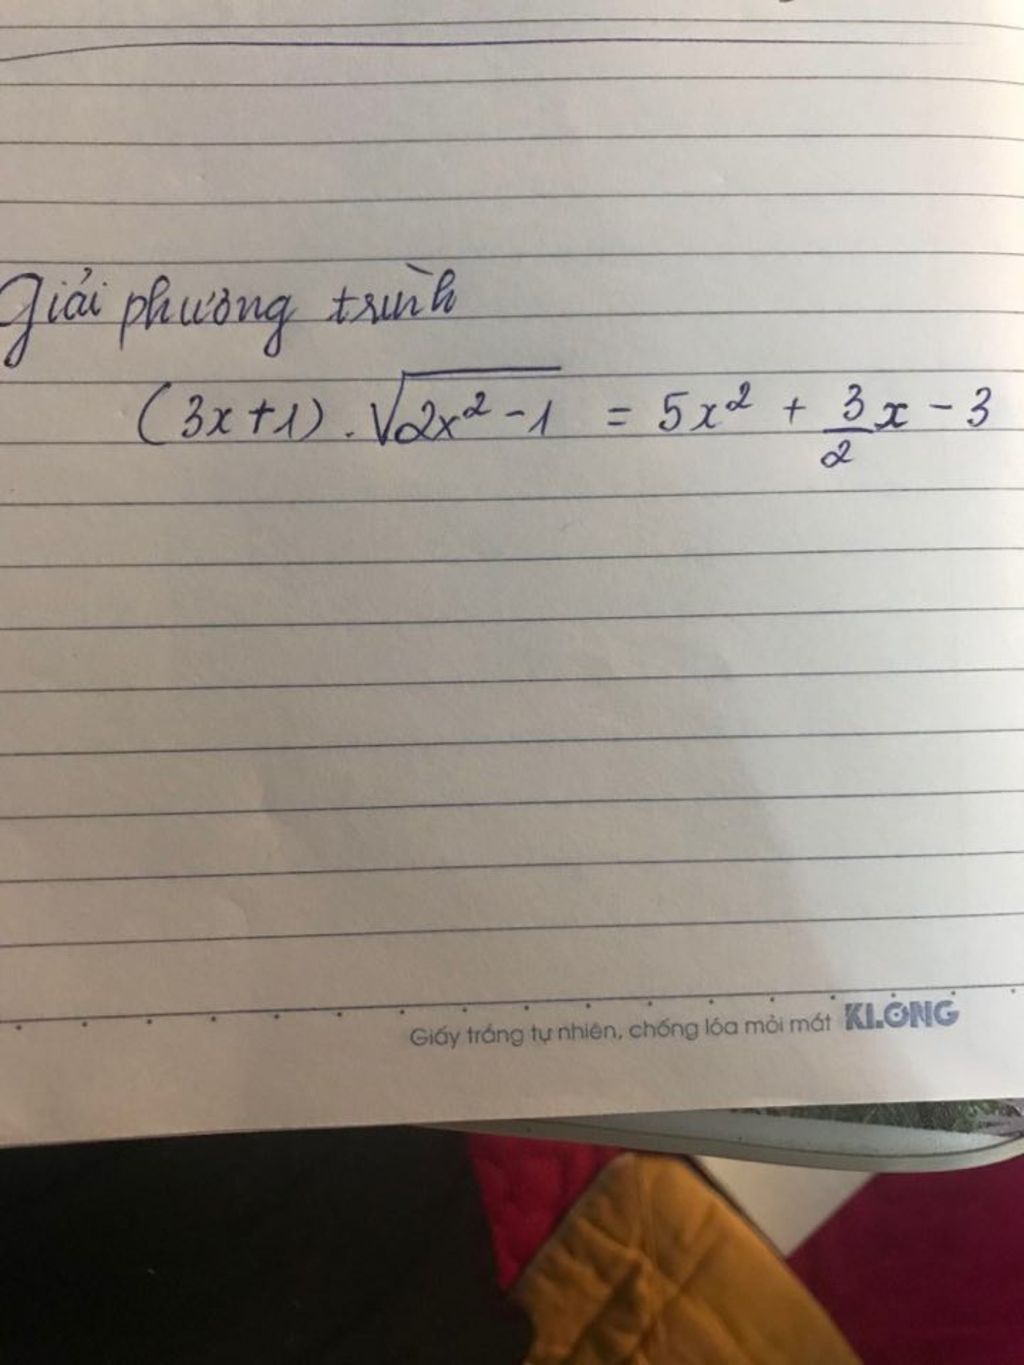 Giải phương trình
(3x+1).√2x²-1 = 5x² + 3/2 x - 3
Giấy trắng tự nhiên, chống lóa mỏi mắt KLONG